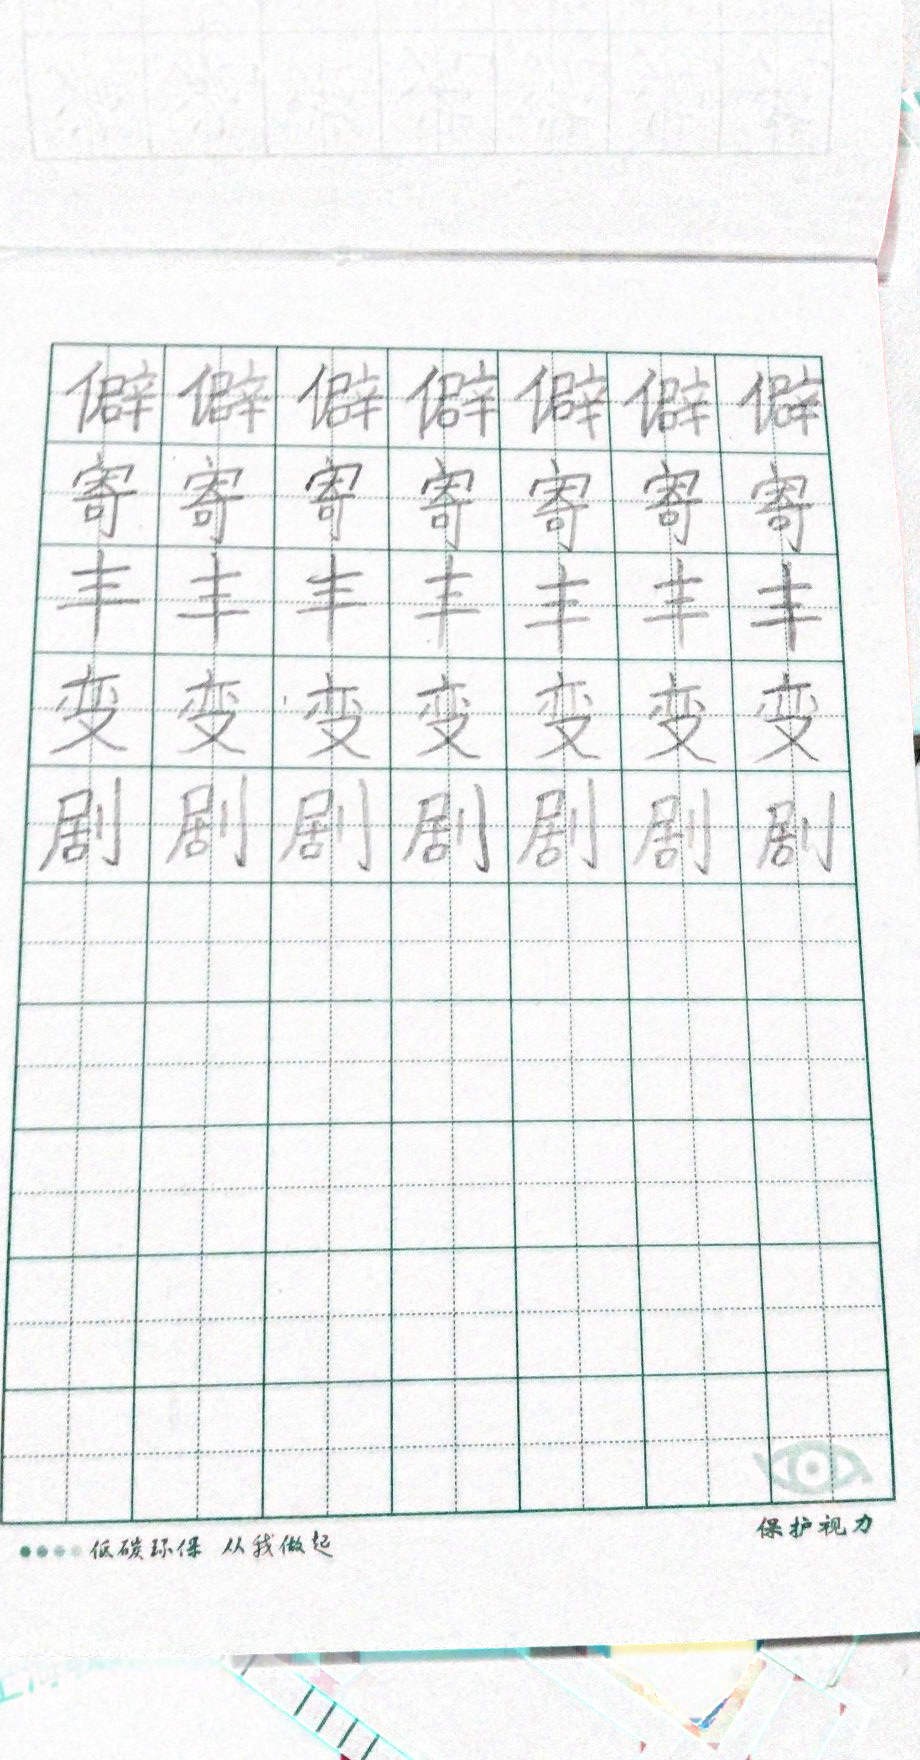 僻僻僻僻僻僻僻
寄寄寄寄寄寄寄
丰丰丰丰丰丰丰
变变变变变变变
剧剧剧剧剧剧剧
保护视力
低碳环保 从我做起